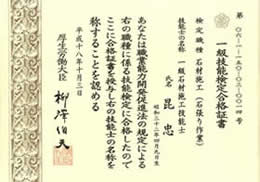 一級技能検定合格証書
検定職種 石材施工(石張り作業)
技能士の名称 一級石材施工技能士
氏名 昆 忠
あなたは職業能力開発促進法の規定による
右の職種に係る技能検定に合格したので
ここに合格証書を授与し右の技能士の名称を
称することを認める
平成十八年十月三日
厚生労働大臣 柳澤伯夫